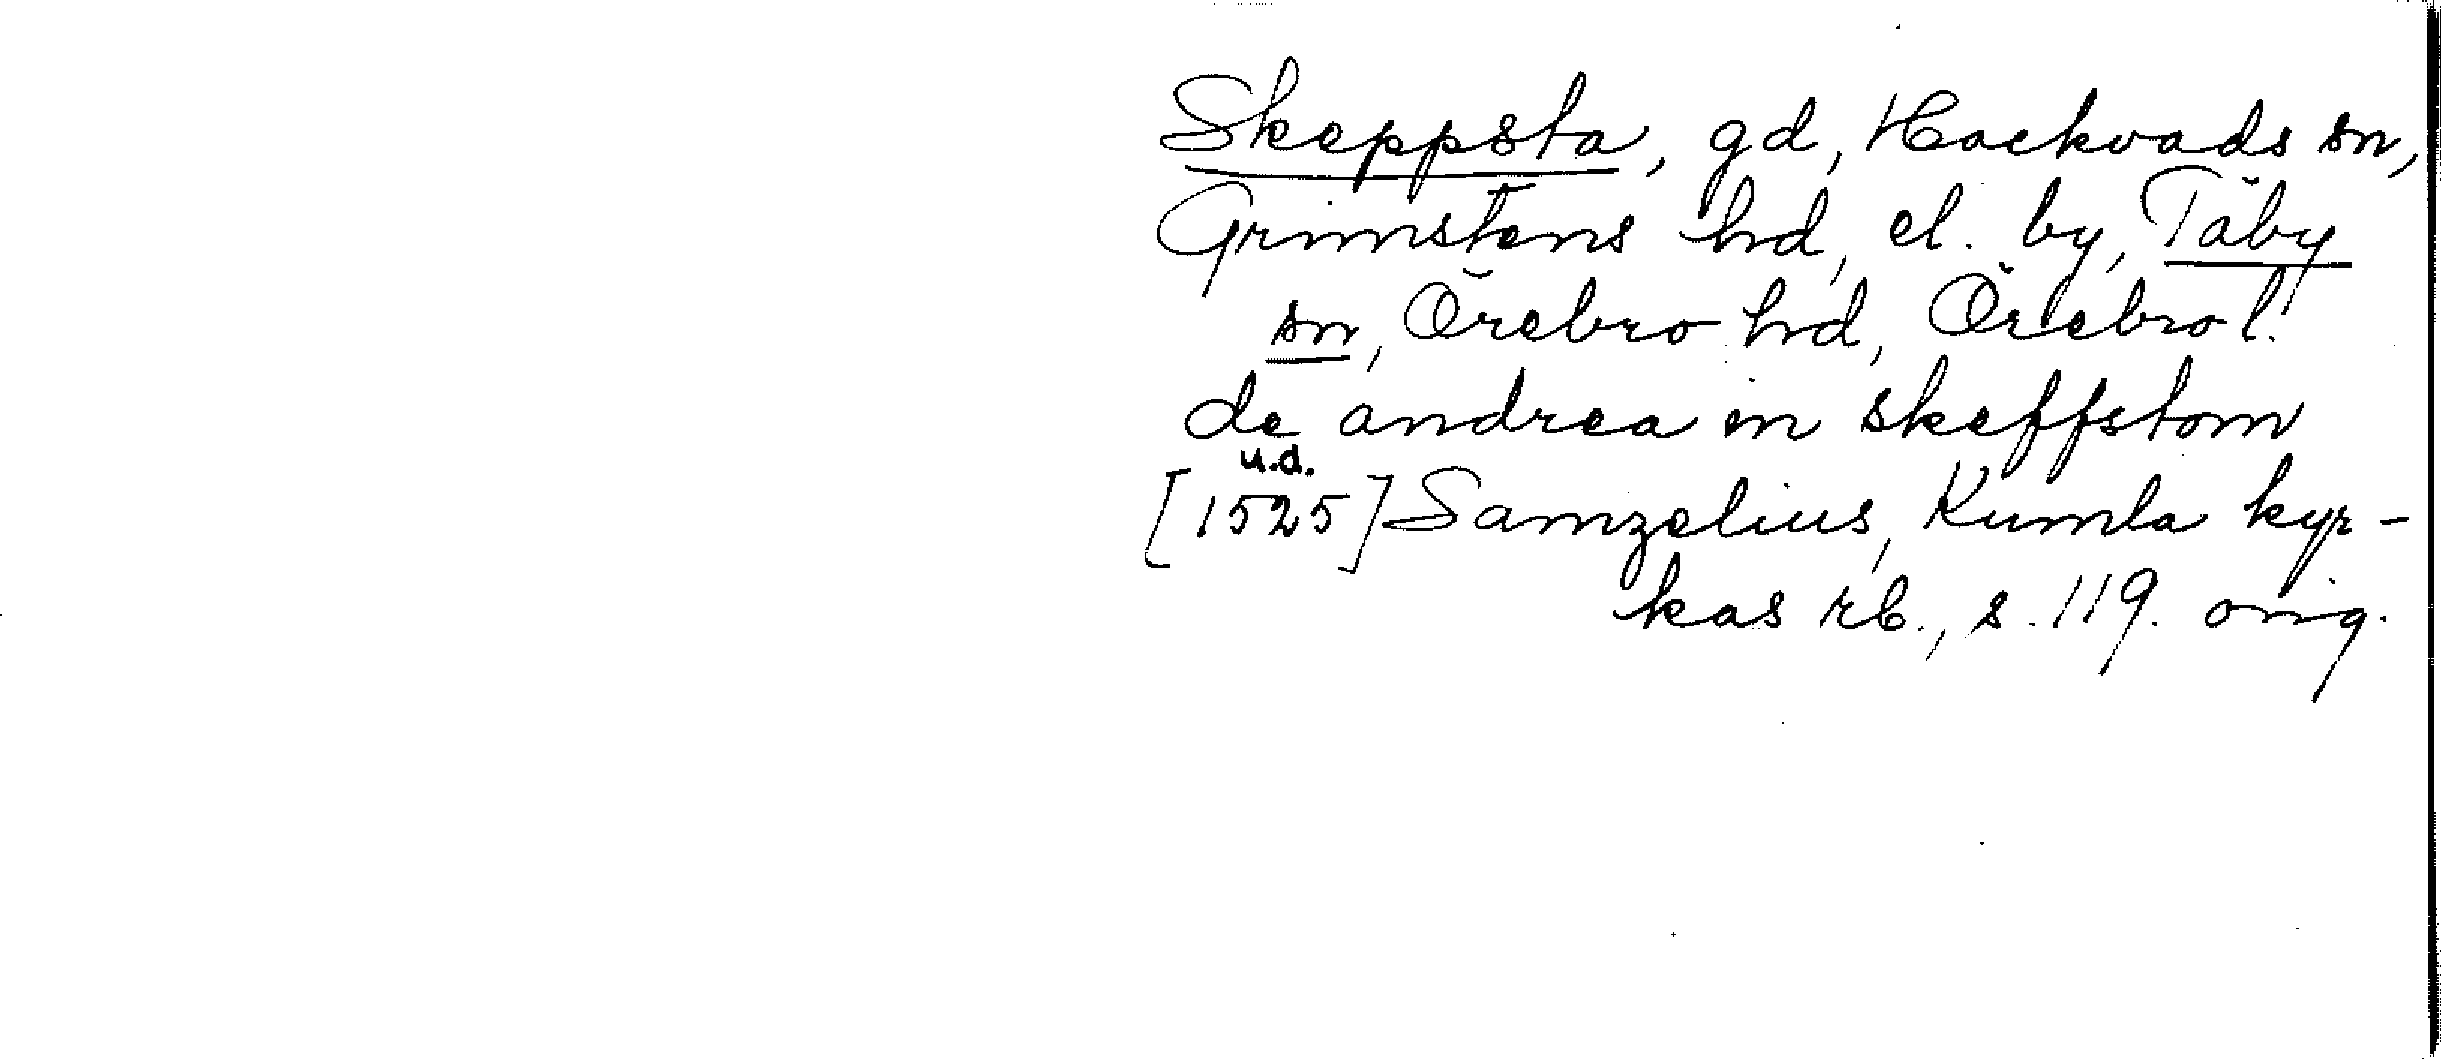 Skeppsta, gd, Hackvads sn,
Grimstens hd, el. by, Täby
sn, Örebro hd, Örebro l.
de andrea in skeffstom
u.d.
[1525] Samzelius, Kumla kyr-
kas rb., s. 119. orig.